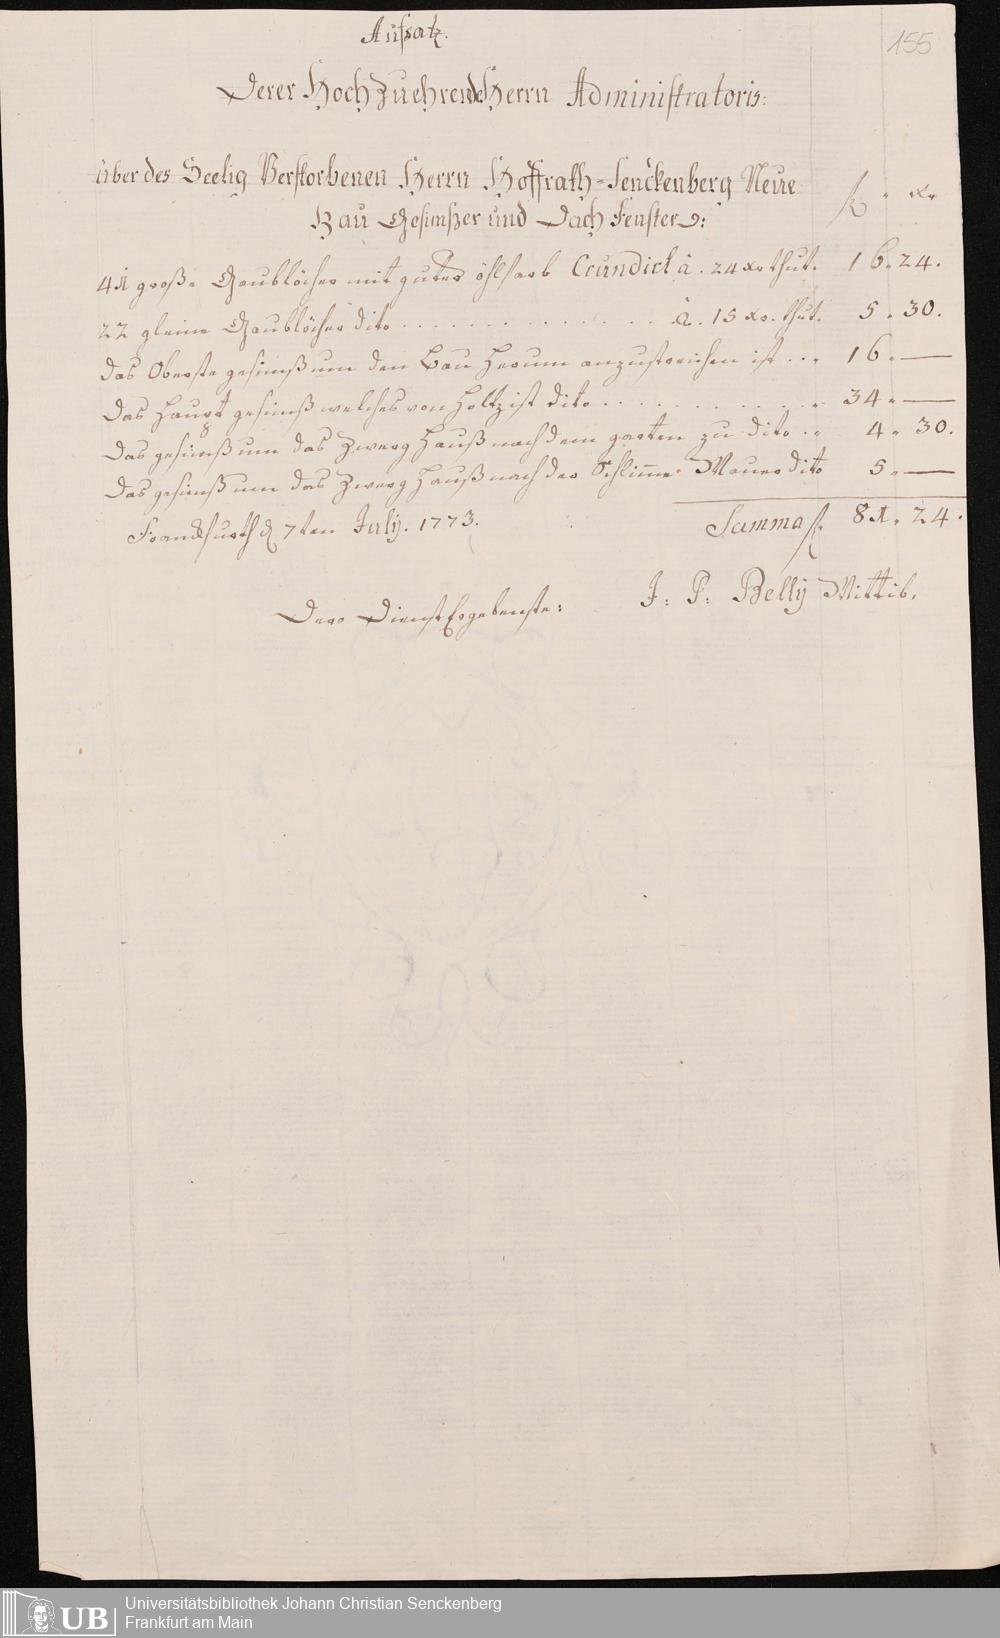 Aufsatz.
155
Derer Hoch Zuehrende Herrn Administratoris:
über des Seelig Verstorbenen Herrn Hoffrath-Senckenberg Neue
Bau Gesimßer und Dach Fenster:
fl. xr
41 große Gaublöcher mit guter öhlfarb à. 24 xr thut. 16. 24.
22 gleine Gaublöcher dito . . . . . . . . . . . . . à. 15 xr. thut. 5. 30.
das Oberste gesimß um den Bau herum anzustreichen ist . . . 16. —
das Haupt gesimß welches von Holtz ist dito . . . . . . . . . . . 34. —
das gesimß um das Zwerg Hauß nach dem garten zu dito . . 4. 30.
das gesimß um das Zwerg Hauß nach der Schlimme Mauer dito 5. —
Franckfurth d 7ten July. 1773. Summa fl. 81. 24.
Dero Dienst Ergebenste: J: P: Belly Wittib.
UB
Universitätsbibliothek Johann Christian Senckenberg
Frankfurt am Main